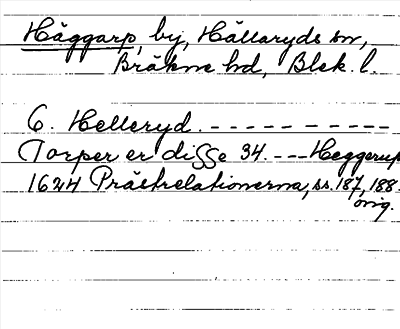 Häggarp, by, Hällaryds sn,
Bräkne hd, Blek. l.
6. Helleryd. - - - - - - - - - -
Torper er disse 34. --- Heggerup
1624 Prästrelationerna, ss. 187, 188.
orig.